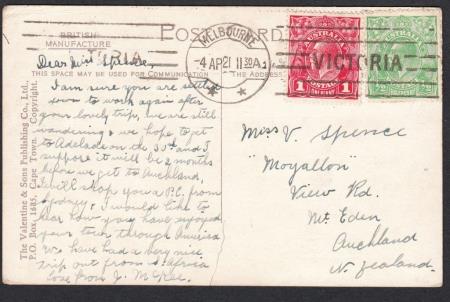 POST CARD
BRITISH
MANUFACTURE
THIS SPACE MAY BE USED FOR COMMUNICATION
THE ADDRESS
MELBOURNE
-4 AP 21 11 30A
VICTORIA
TORIA
AUSTRALIA
1
1
AUSTRALIA
½
½
The Valentine & Sons Publishing Co., Ltd.,
P.O. Box, 1685, Cape Town. Copyright.
Dear Miss Spence,
I am sure you are settled
down to work again after
your lovely trip, we are still
wandering & we hope to get
to Adelaide on the 30th and I
suppose it will be 2 months
before we get to Auckland,
I will drop you a P.C. from
Sydney, I would like to
hear how you have enjoyed
your tour through America
We have had a very nice
trip out from S. Africa
love from J. McRae.
Miss V. Spence
"Moyallon"
View Rd.
Mt. Eden
Auckland
N. Zealand.